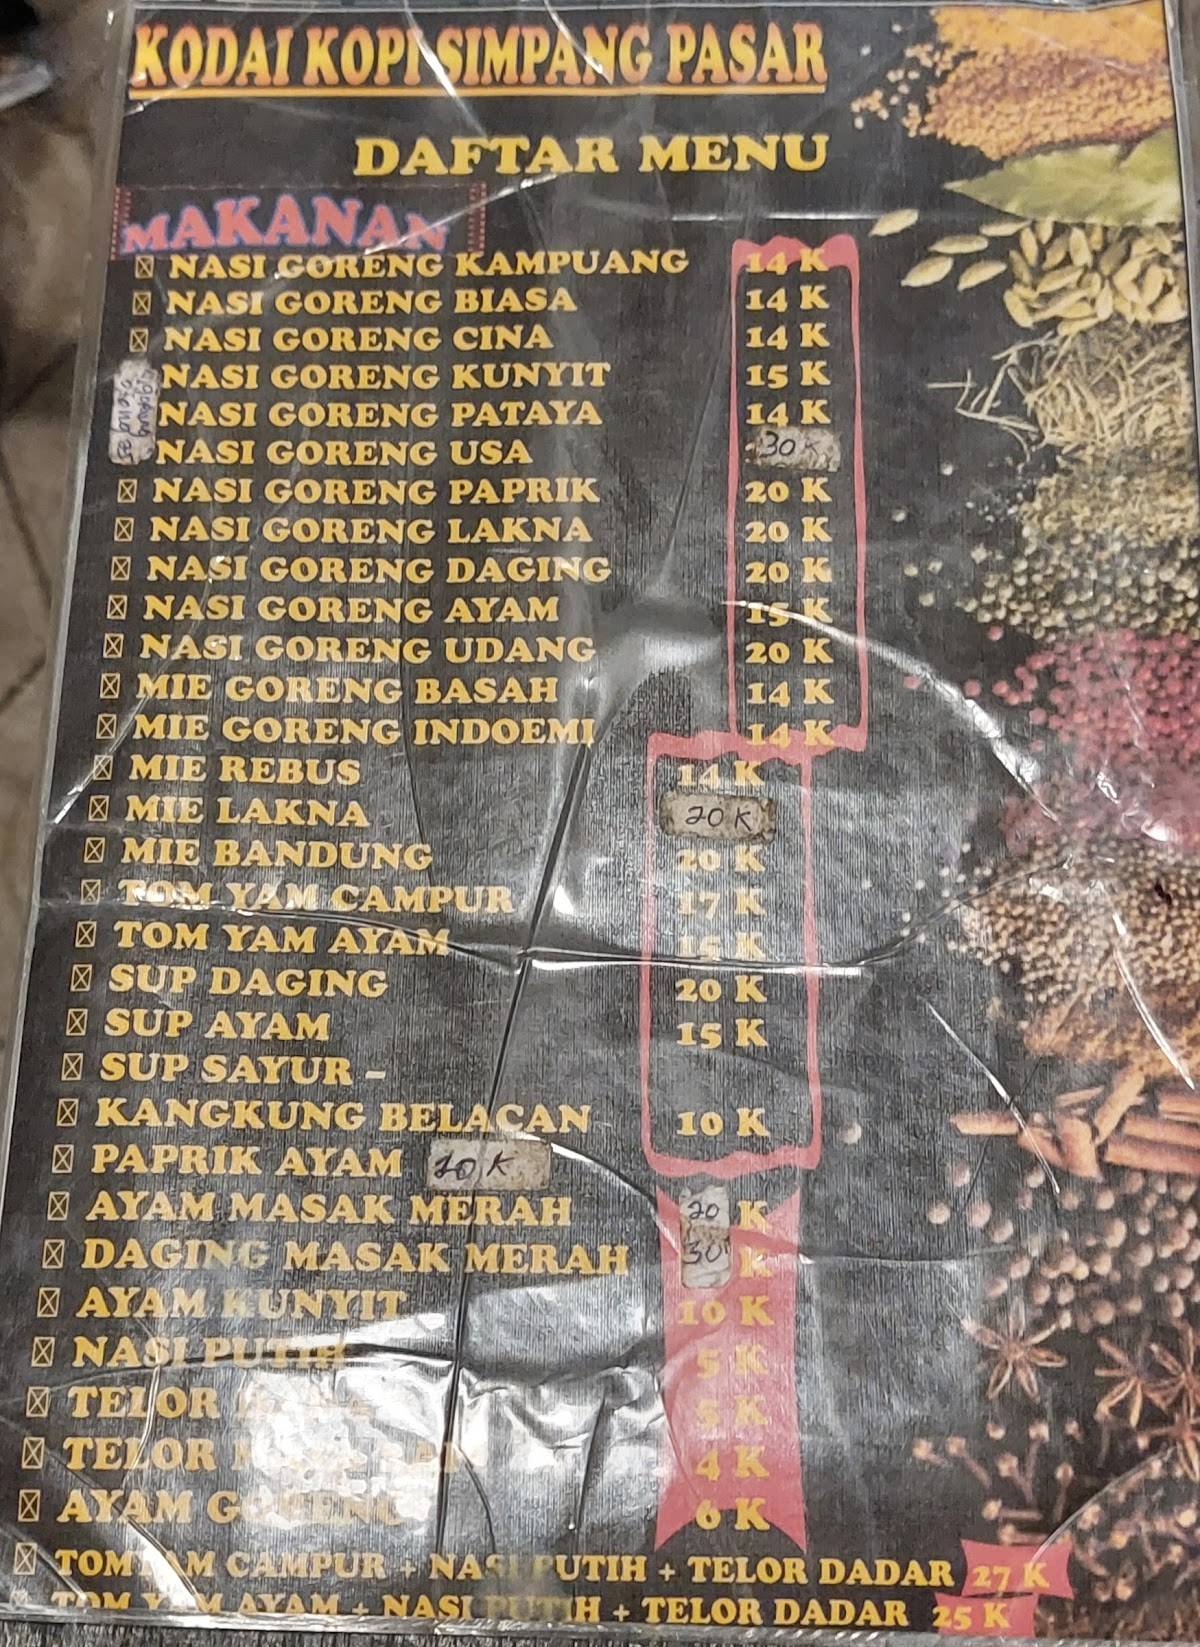 KODAI KOPI SIMPANG PASAR
DAFTAR MENU
MAKANAN
NASI GORENG KAMPUANG 14 K
NASI GORENG BIASA 14 K
NASI GORENG CINA 14 K
NASI GORENG KUNYIT 15 K
NASI GORENG PATAYA 14 K
NASI GORENG USA 30 K
NASI GORENG PAPRIK 20 K
NASI GORENG LAKNA 20 K
NASI GORENG DAGING 20 K
NASI GORENG AYAM 15 K
NASI GORENG UDANG 20 K
MIE GORENG BASAH 14 K
MIE GORENG INDOEMI 14 K
MIE REBUS 14 K
MIE LAKNA 20 K
MIE BANDUNG 20 K
TOM YAM CAMPUR 17 K
TOM YAM AYAM 15 K
SUP DAGING 20 K
SUP AYAM 15 K
SUP SAYUR –
KANGKUNG BELACAN 10 K
PAPRIK AYAM 20 K
AYAM MASAK MERAH 20 K
DAGING MASAK MERAH 30 K
AYAM KUNYIT 10 K
NASI PUTIH 5 K
TELOR 5 K
TELOR 4 K
AYAM GORENG 6 K
TOM YAM CAMPUR + NASI PUTIH + TELOR DADAR 27 K
TOM YAM AYAM + NASI PUTIH + TELOR DADAR 25 K